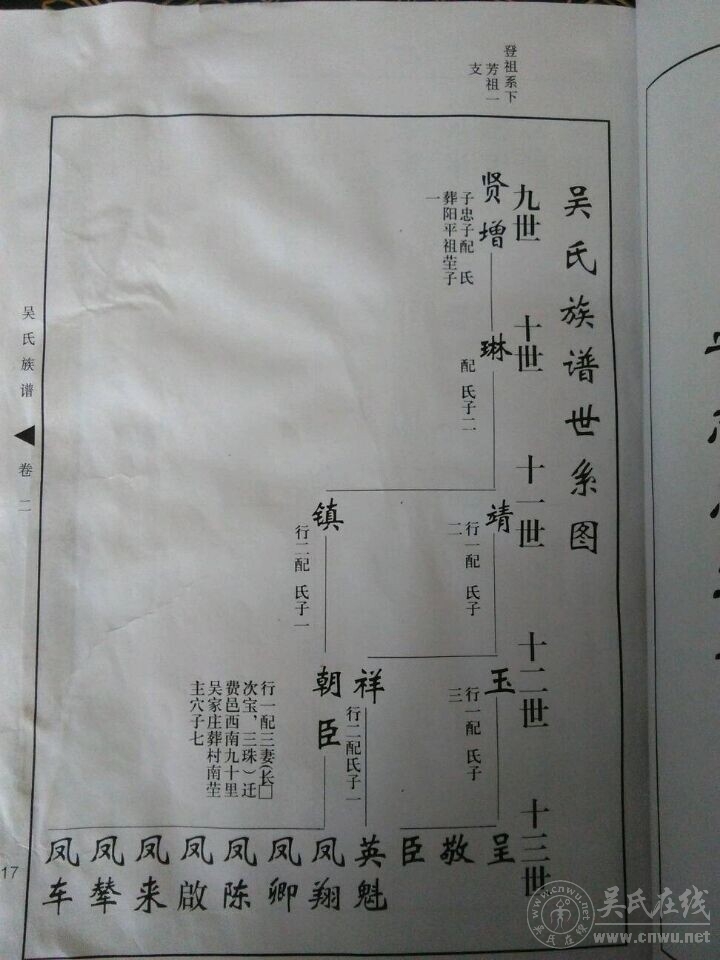 登祖系下
芳祖一
支
吴氏族谱世系图
九世
贤增
子忠子配 氏
葬阳平祖茔子
一
十世
琳
配 氏子二
十一世
靖
行一配 氏子
二
镇
行二配 氏子一
十二世
玉
行一配 氏子
三
祥
行二配氏子一
朝臣
行一配三妻(长□
次宝,三珠)迁
费邑西南九十里
吴家庄葬村南茔
主穴子七
十三世
呈
敬
臣
英魁
凤翔
凤卿
凤陈
凤啟
凤来
凤辇
凤车
吴氏族谱
卷二
17
吴氏在线
www.cnwu.net